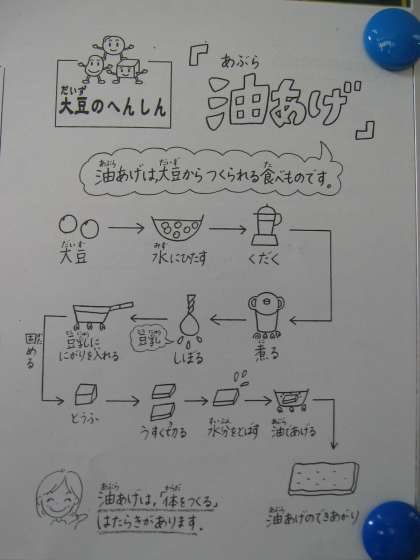 だいず
大豆のへんしん
あぶら
『油あげ』
あぶら だいず た
油あげは、大豆からつくられる食べものです。
だいず
大豆
みず
水にひたす
くだく
に
煮る
しぼる
豆乳
豆乳に
にがりを入れる
固める
とうふ
うすく切る
すいぶん
水分をとばす
あぶら
油であげる
あぶら
油あげのできあがり
あぶら からだ
油あげは、「体をつくる」
はたらきがあります。